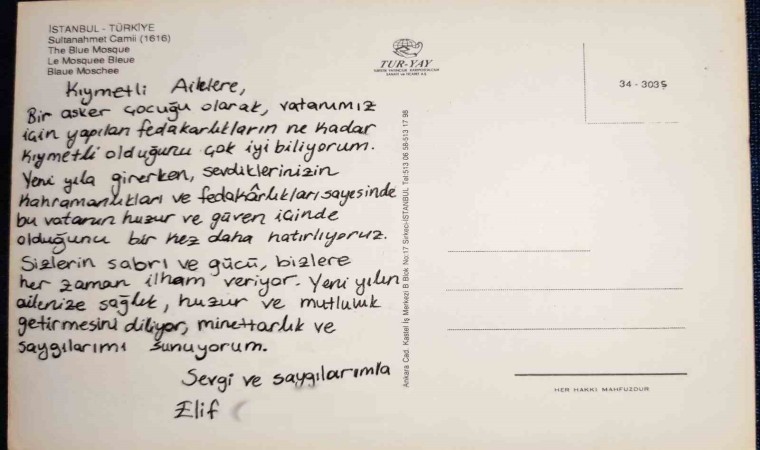 İSTANBUL - TÜRKİYE
Sultanahmet Camii (1616)
The Blue Mosque
Le Mosquee Bleue
Blaue Moschee
Kıymetli Ailelere,
Bir asker çocuğu olarak, vatanımız
için yapılan fedakarlıkların ne kadar
kıymetli olduğunu çok iyi biliyorum.
Yeni yıla girerken, sevdiklerinizin
kahramanlıkları ve fedakârlıkları sayesinde
bu vatanın huzur ve güven içinde
olduğunu bir kez daha hatırlıyoruz.
Sizlerin sabrı ve gücü, bizlere
her zaman ilham veriyor. Yeni yılın
ailenize sağlık, huzur ve mutluluk
getirmesini diliyor, minettarlık ve
saygılarımı sunuyorum.
Sevgi ve saygılarımla
Elif
TUR-YAY
SANAYİ ve TİCARET A.Ş.
Ankara Cad. Kastel İş Merkezi B Blok No:17 Sirkeci-İSTANBUL Tel:513 06 58-513 17 98
34 - 303Ş
HER HAKKI MAHFUZDUR